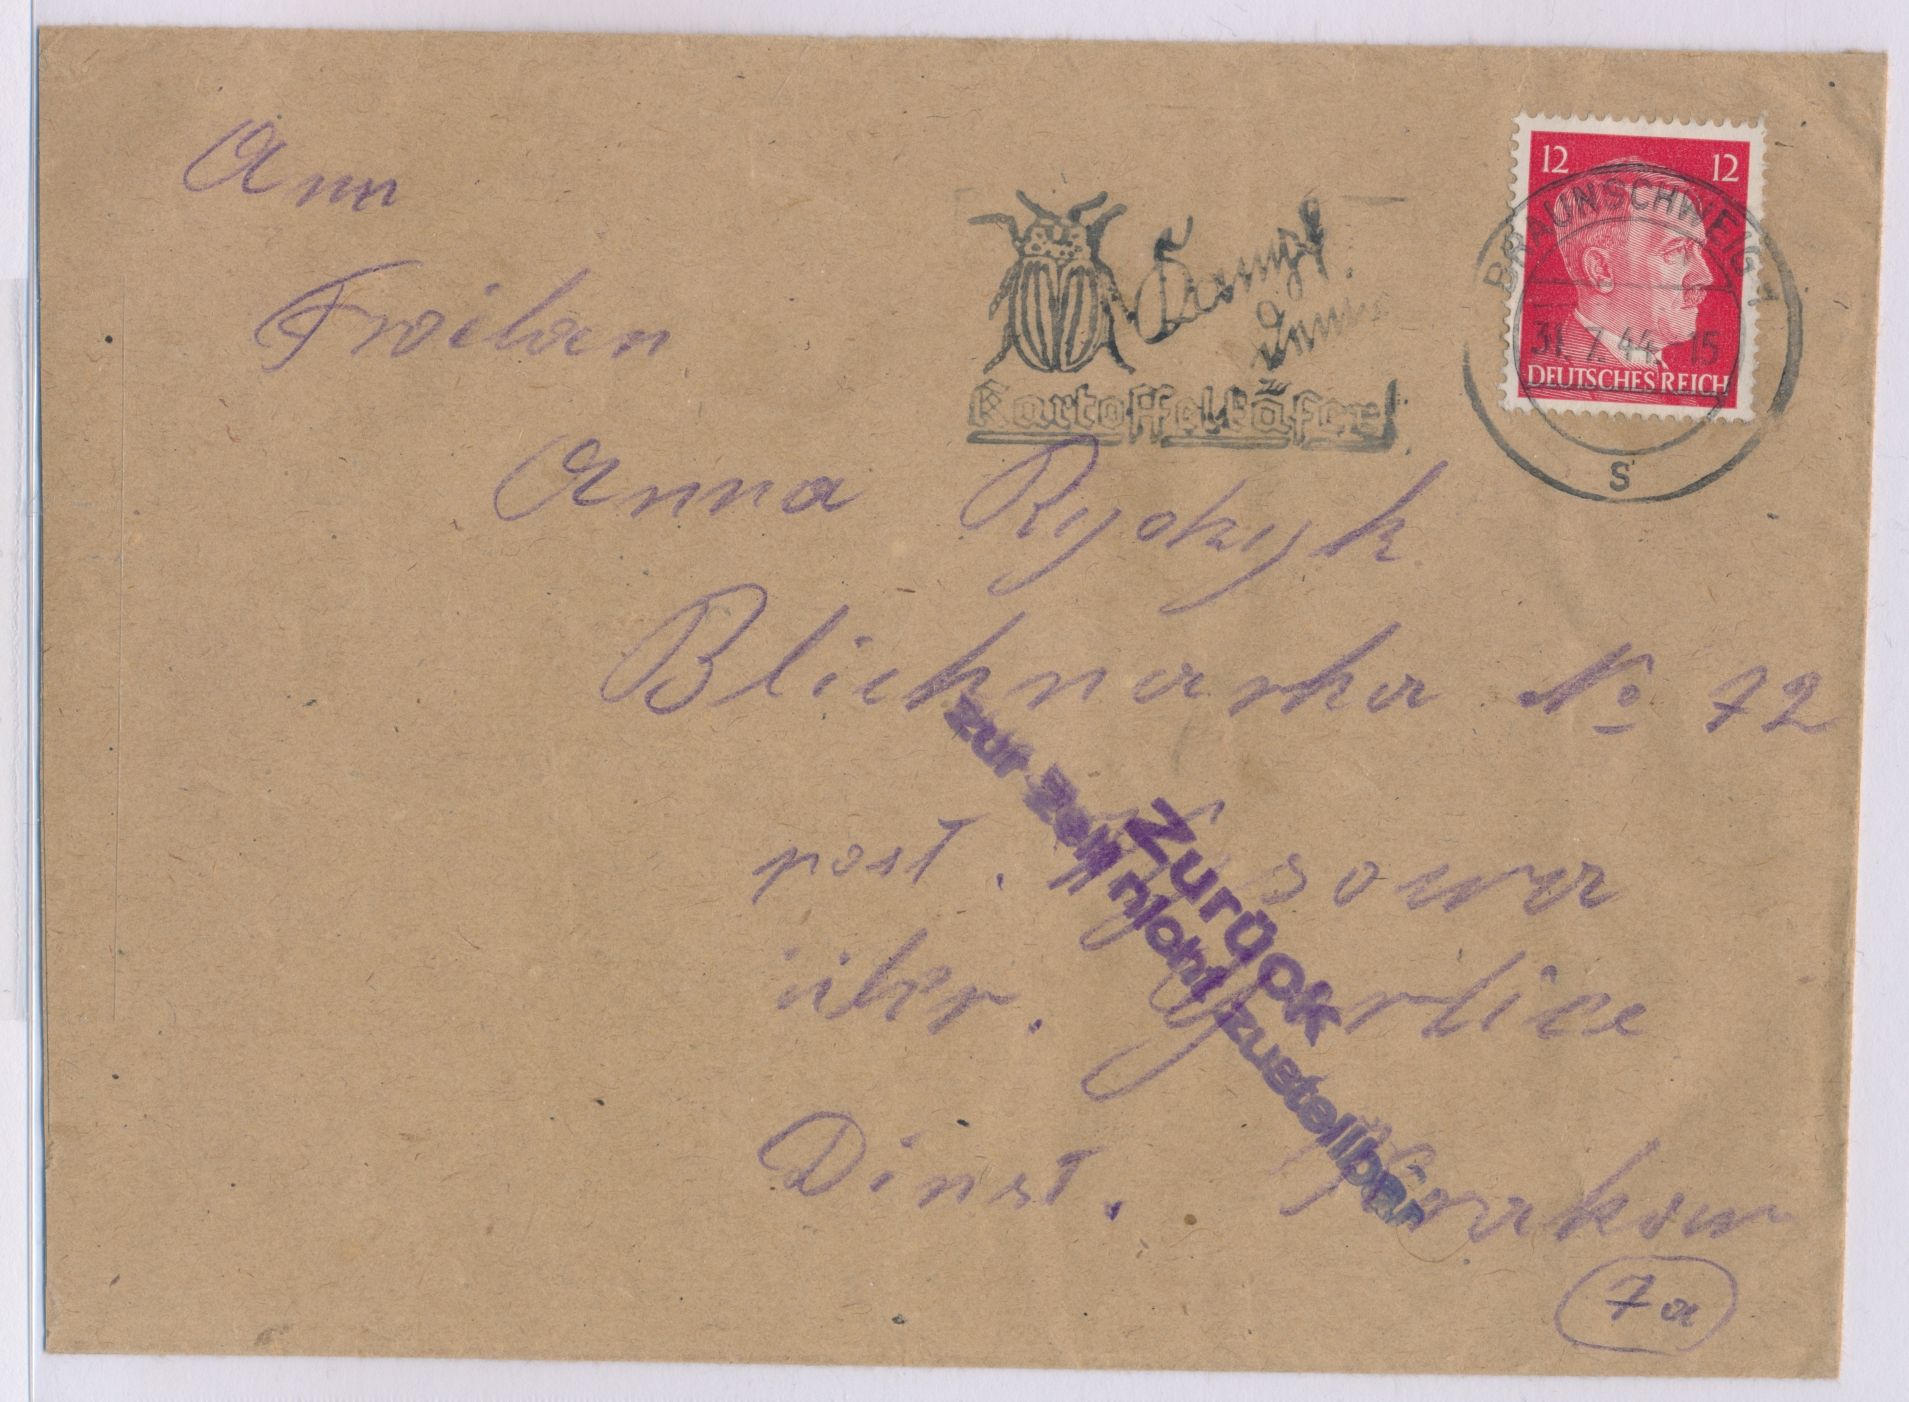 Ann
Froilan
Anna Ryckyk
Bliehnarka No 72
post. sowa
über. Gorlice
Dinst. Krakow
7a
Kampf
dem
Kartoffelkäfer!
12 12
DEUTSCHES REICH
BRAUNSCHWEIG 1
31.7.44. 15
s
Zurück
zur Zeit nicht zustellbar